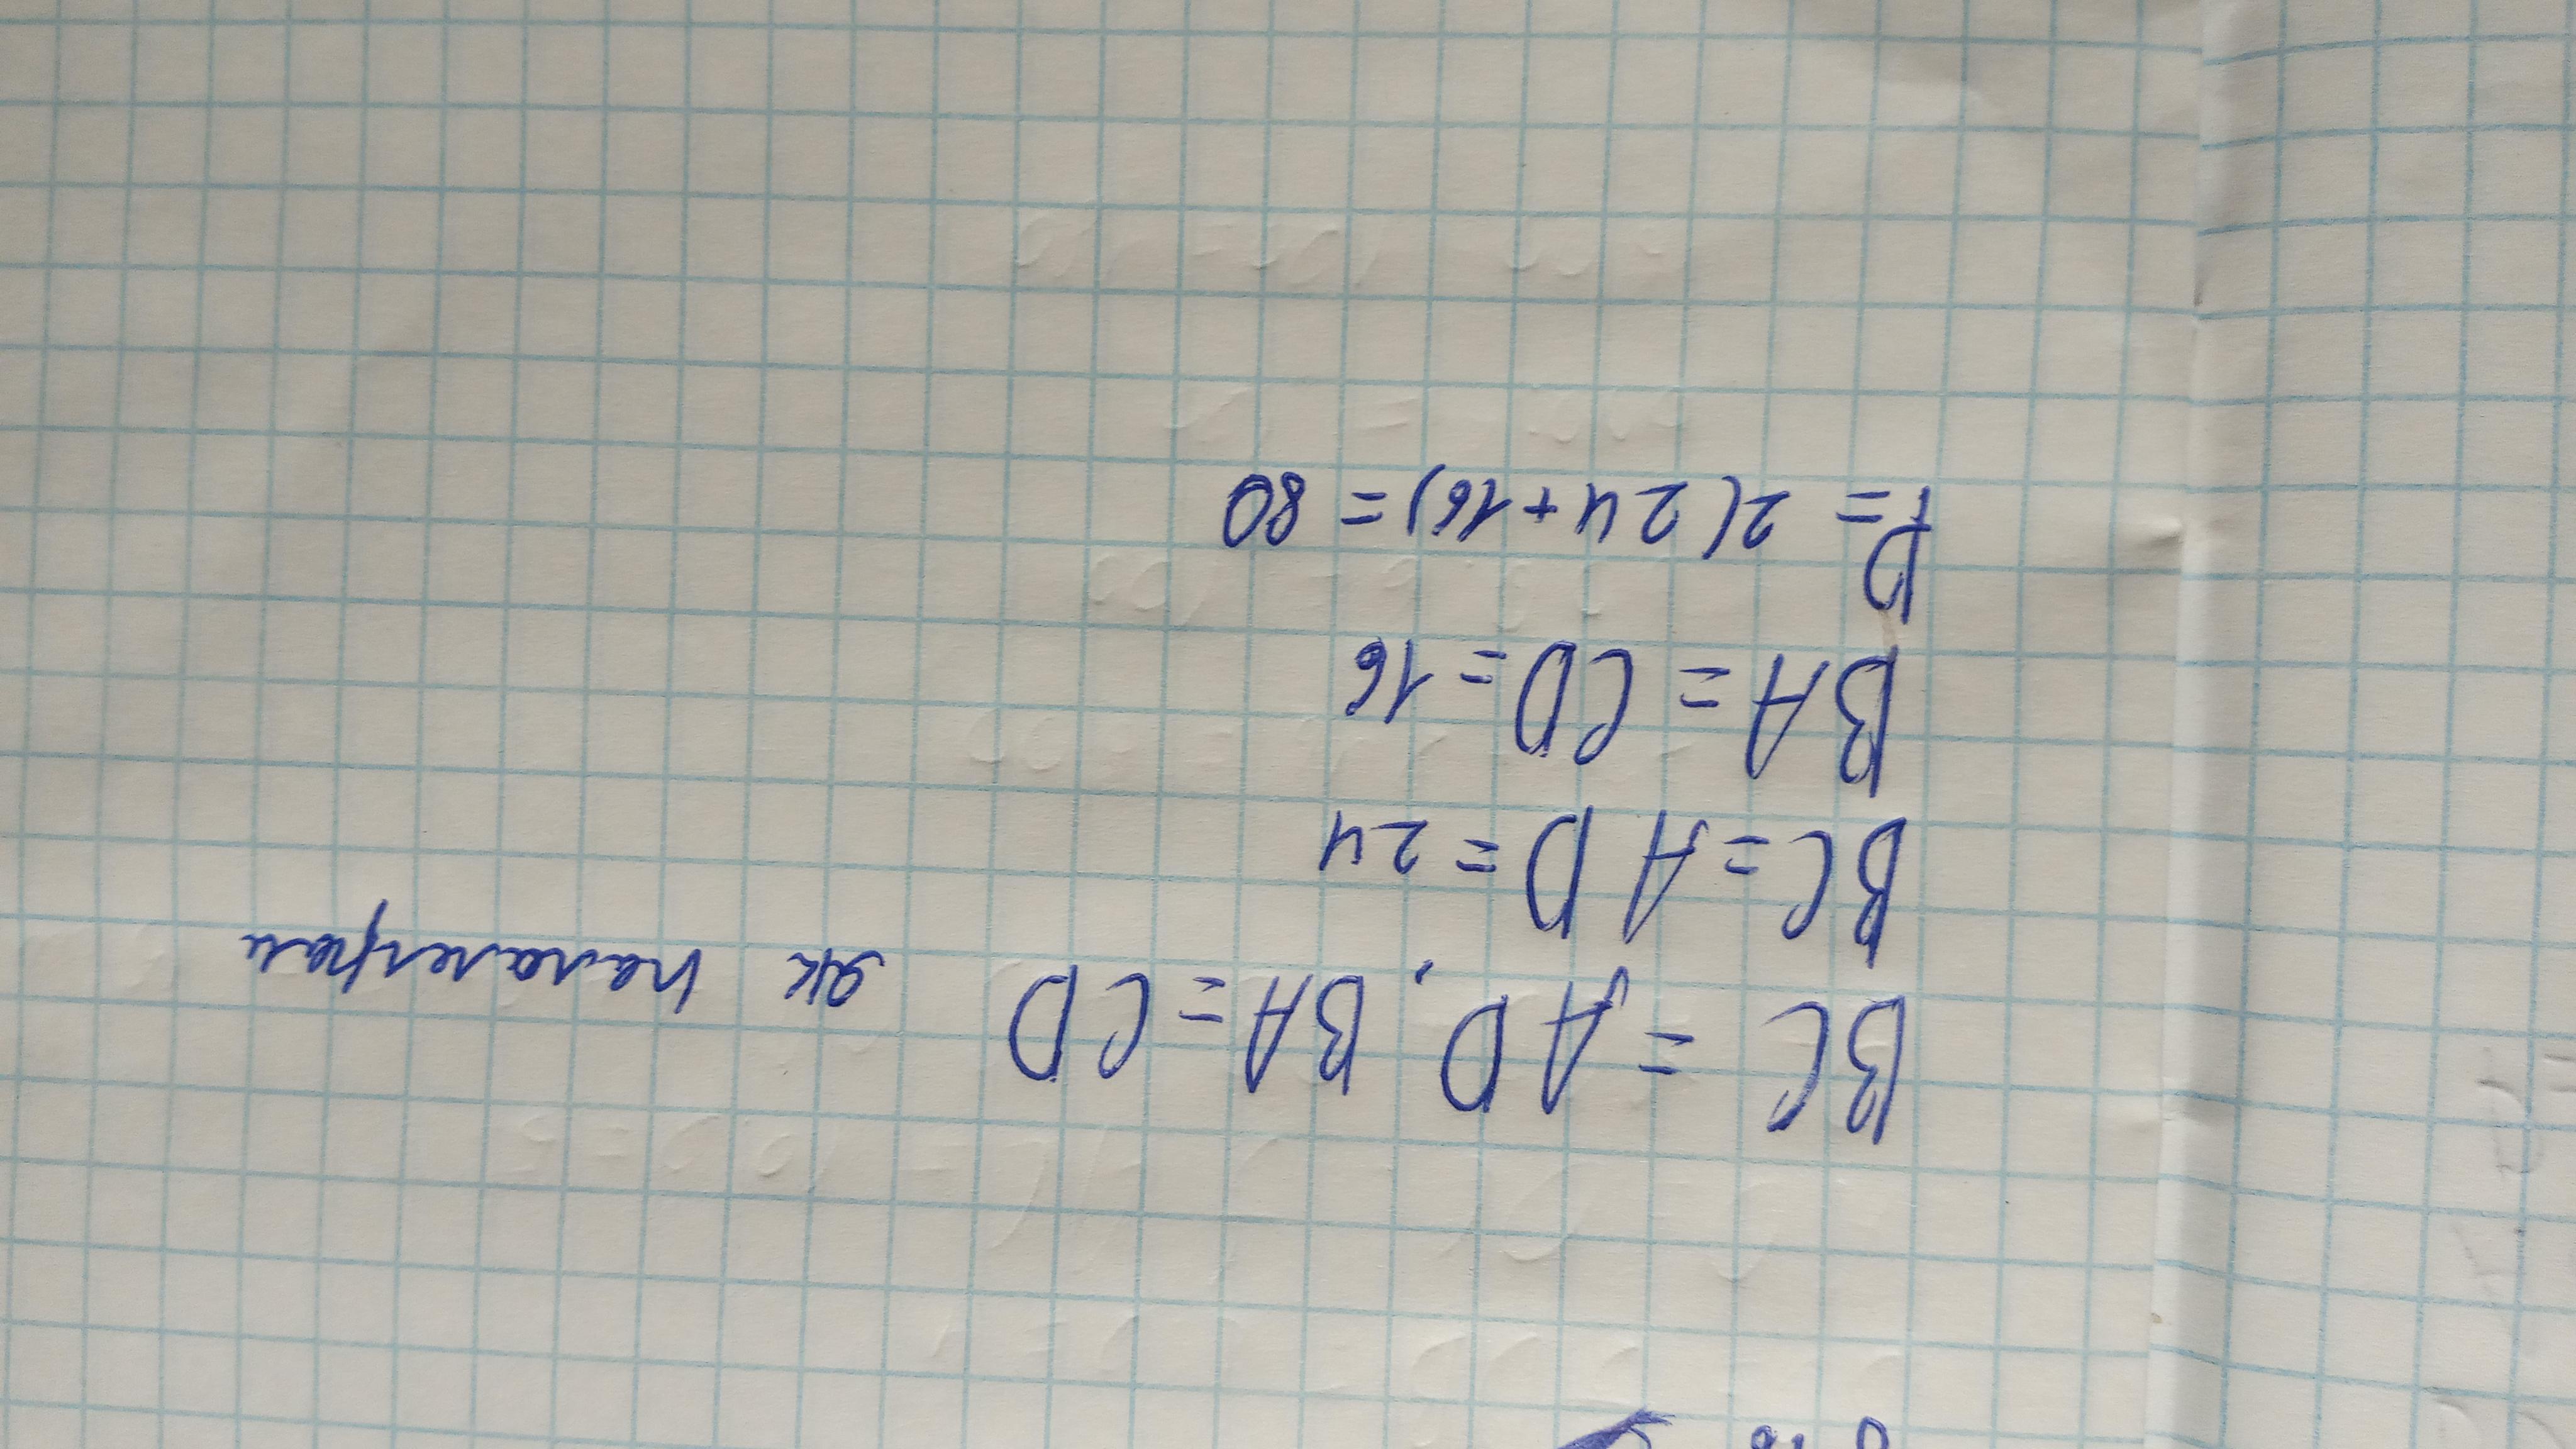 BC = AD, BA = CD як паралеграм
BC = AD = 24
BA = CD = 16
P = 2(24 + 16) = 80